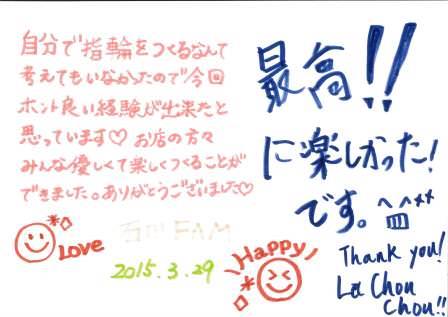 自分で指輪をつくるなんて
考えてもいなかったので今回
ホント良い経験が出来たと
思っています♡ お店の方々
みんな優しくて楽しくつくることが
できました。ありがとうございました♡
Love
FAM
2015.3.29
最高!!
に楽しかった!
です。
Happy
Thank you!
La Chou
Chou!!